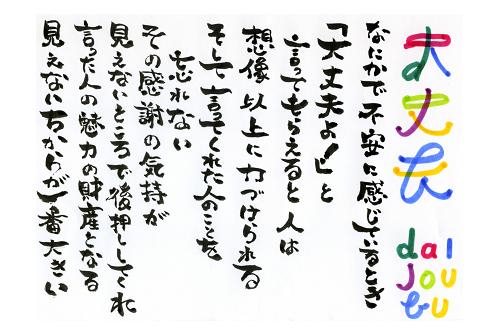 大丈夫
dai
jou
bu
なにかで不安に感じているとき
「大丈夫よ!」と
言ってもらえると人は
想像以上に力づけられる
そして言ってくれた人のことを
忘れない
その感謝の気持が
見えないところで後押ししてくれ
言った人の魅力の財産となる
見えないちからが一番大きい